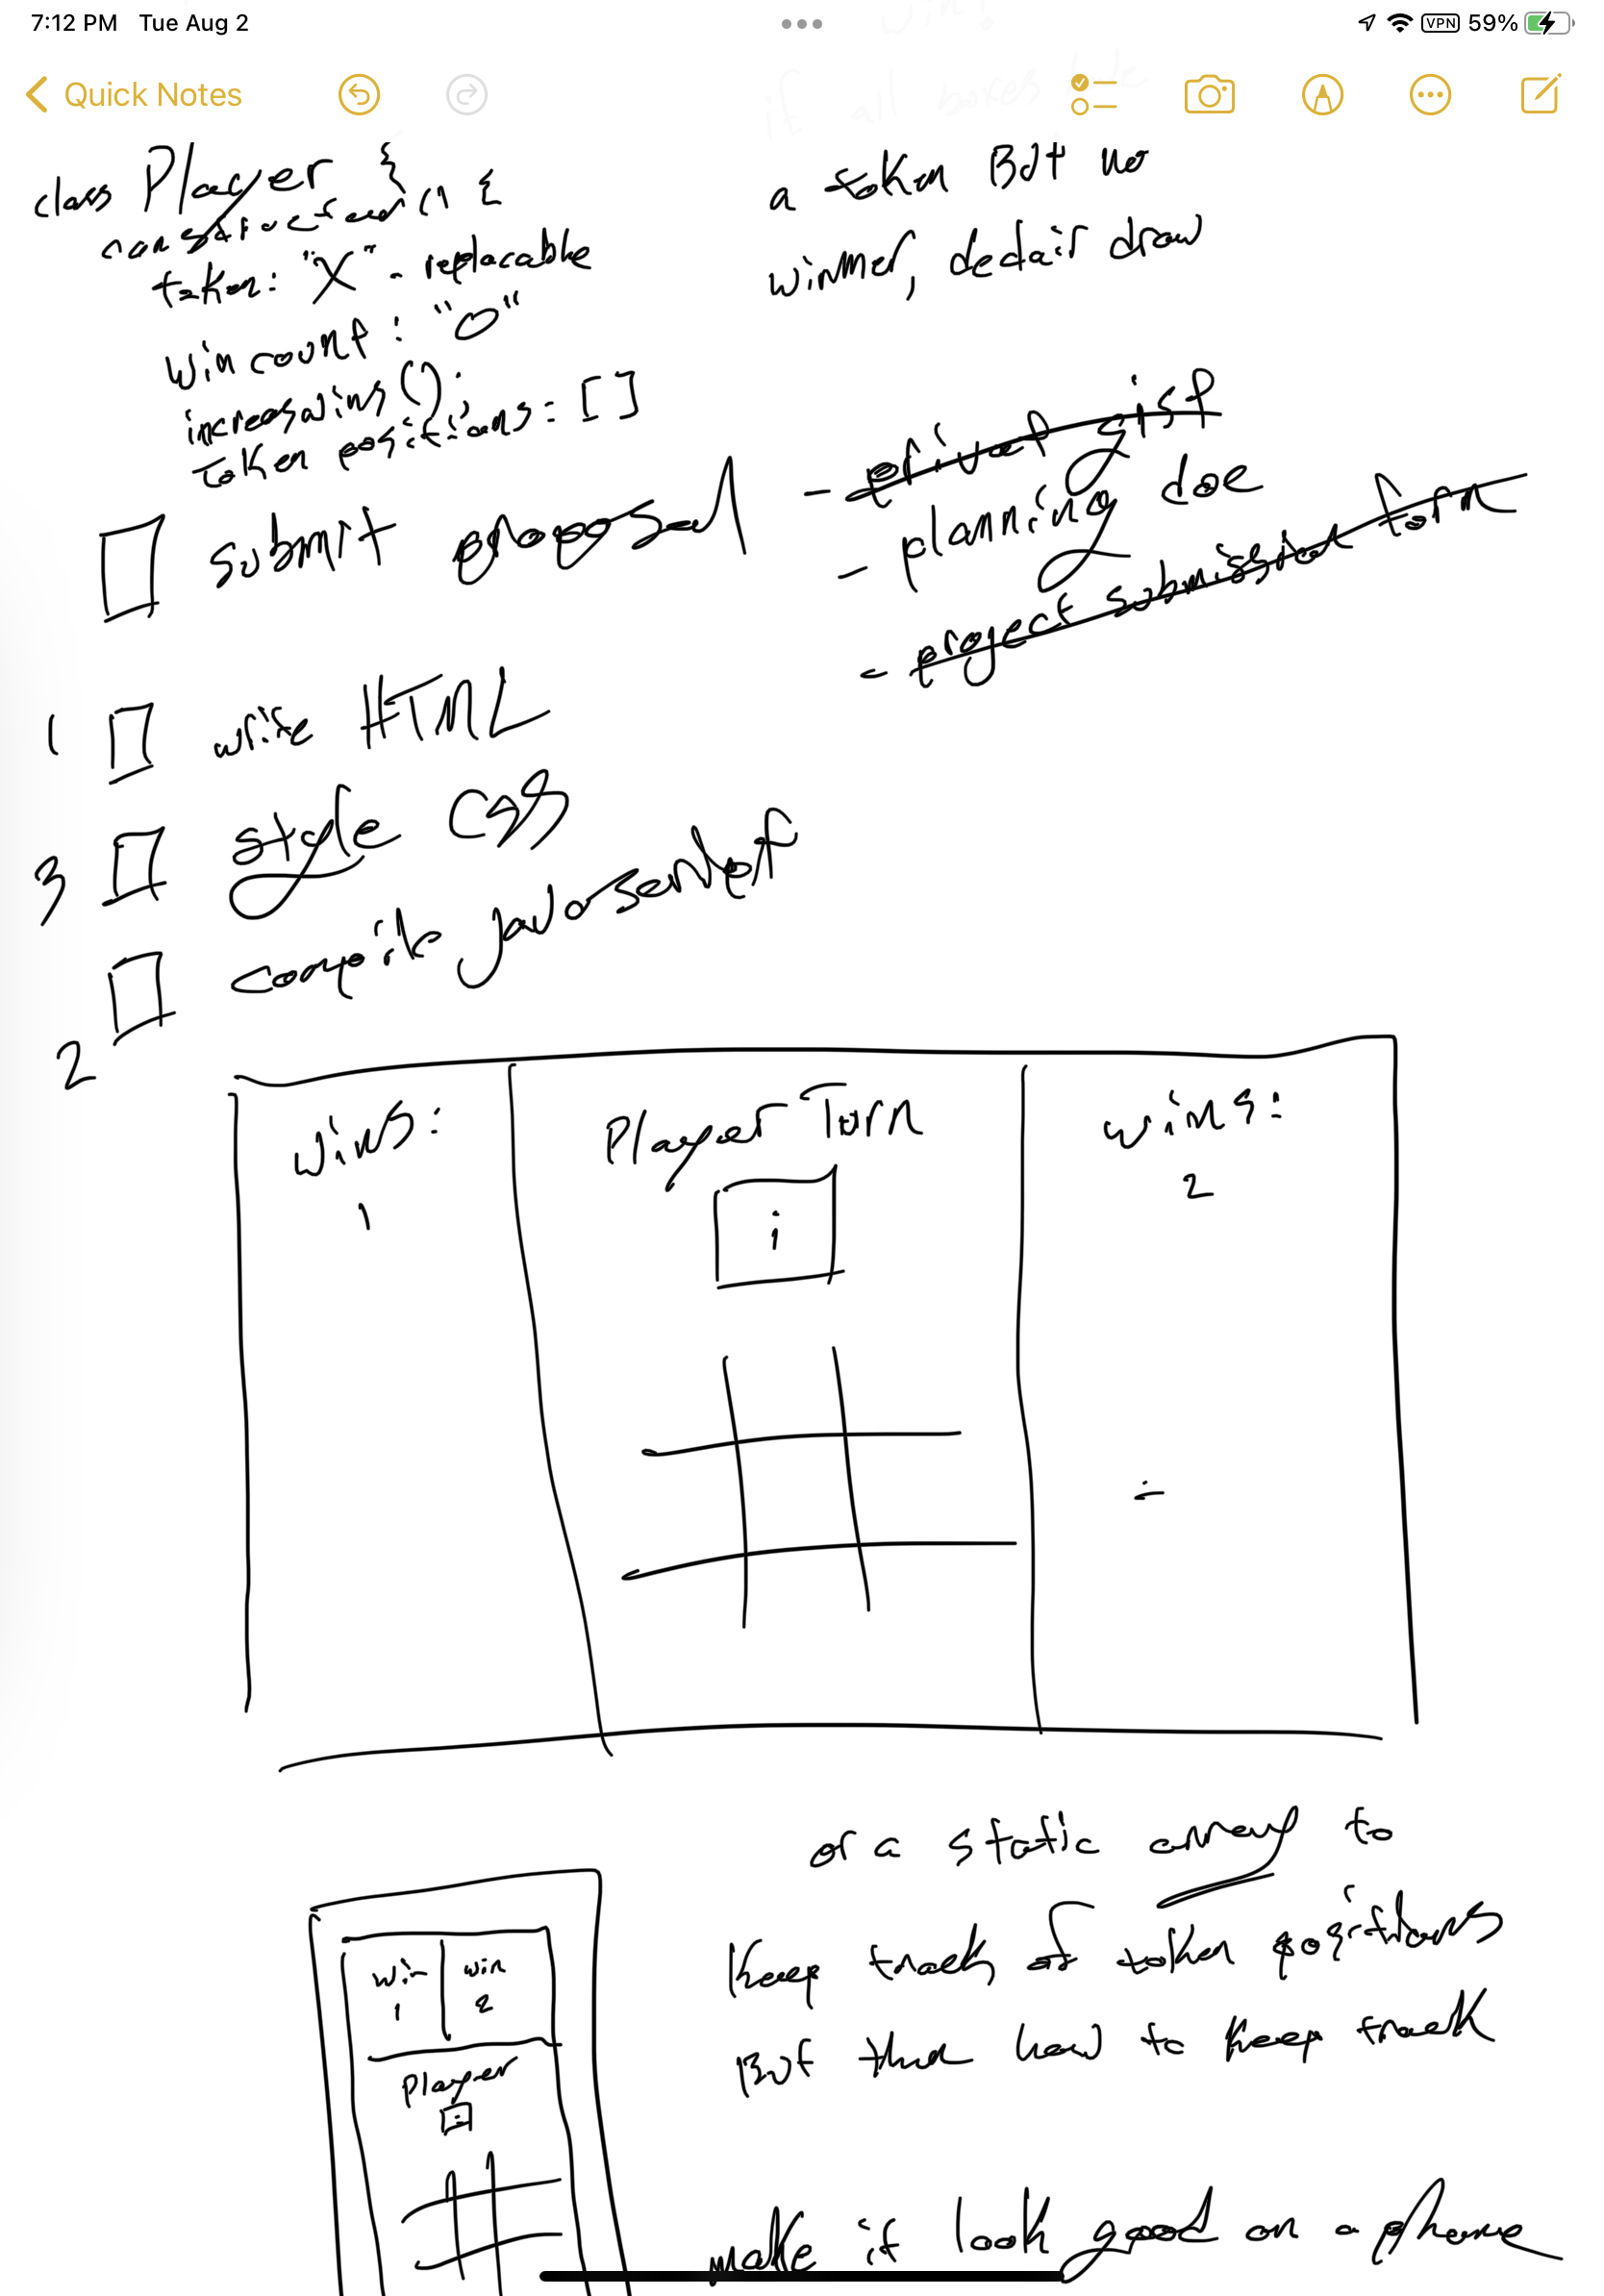 7:12 PM Tue Aug 2
VPN 59%
Quick Notes
win!
if all boxes
class Player {
() {
token: "X" - replacable
win count: "0"
increaswins();
token positions = []
a token But no
winner, declair draw
submit proposal
- privat gist
- planning doc
- project submission form
1 write HTML
3 style CSS
2 compile
Wins:
1
Player Turn
i
wins:
2
or a static array to
keep track of token positions
But then how to keep track
win
1
win
2
Player
make it look good on a phone